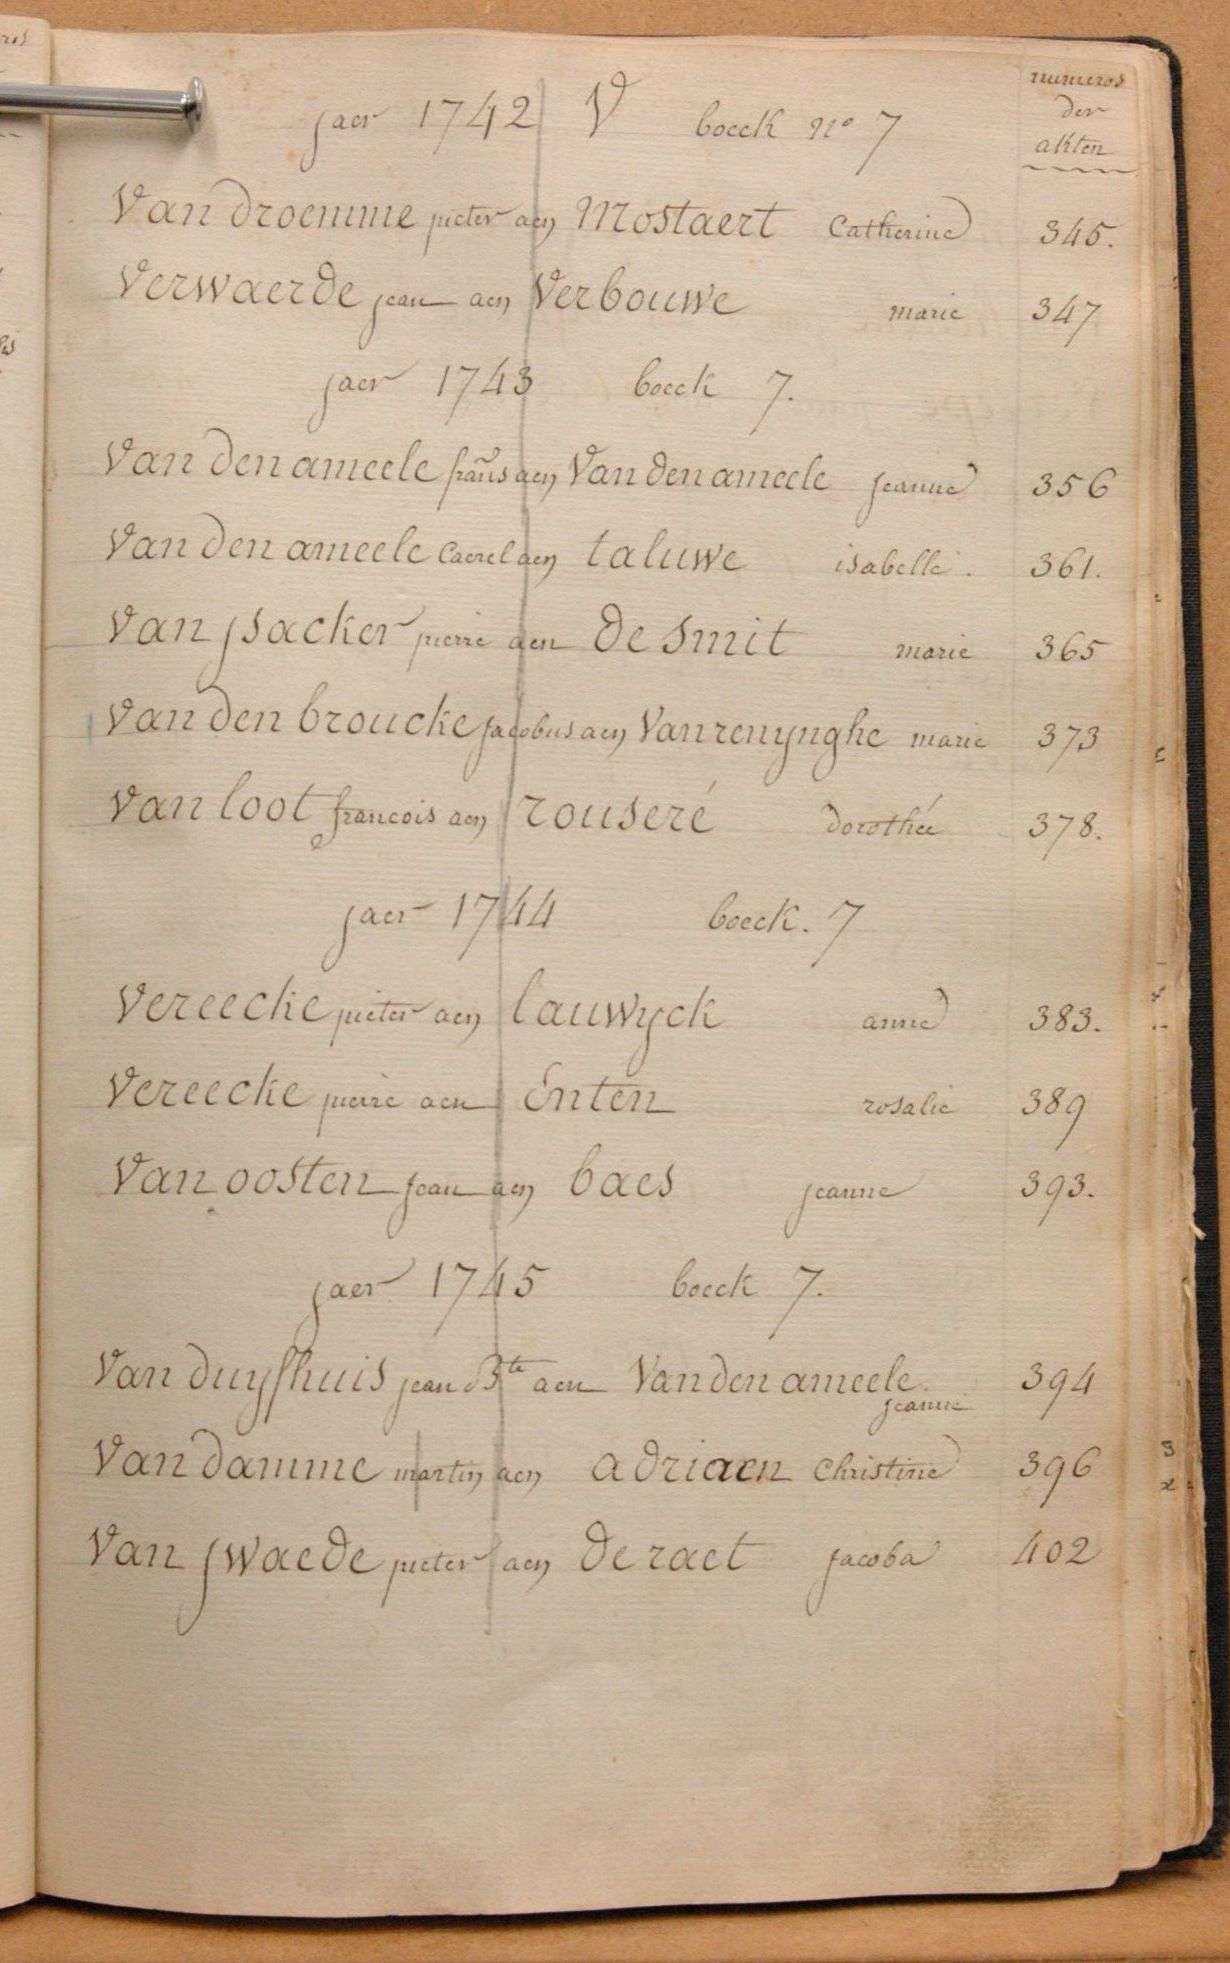 numeros
der
akten
jaer 1742 V boeck nº 7
Van droemme pieter aen Mostaert Catherine 345.
Verwaerde jean aen Verbouwe marie 347
jaer 1743 boeck 7.
Van den ameele frañs aen Van den ameele jeanne 356
Van den ameele Caerel aen taluwe isabelle. 361.
Van jsacker pierre aen de smit marie 365
Van den broucke jacobus aen Van renynghe marie 373
Van loot francois aen rouseré dorothée 378.
jaer 1744 boeck. 7
Vereecke pieter aen lauwyck anne 383.
Vereecke pierre aen Enten rosalie 389
Van oosten jean aen baes jeanne 393.
jaer 1745 boeck 7.
Van duyshuis jean Bte aen Van den ameele. 394
jeanne
Van damme martin aen adriaen Christine 396
Van jwaede pieter aen de raet jacoba 402